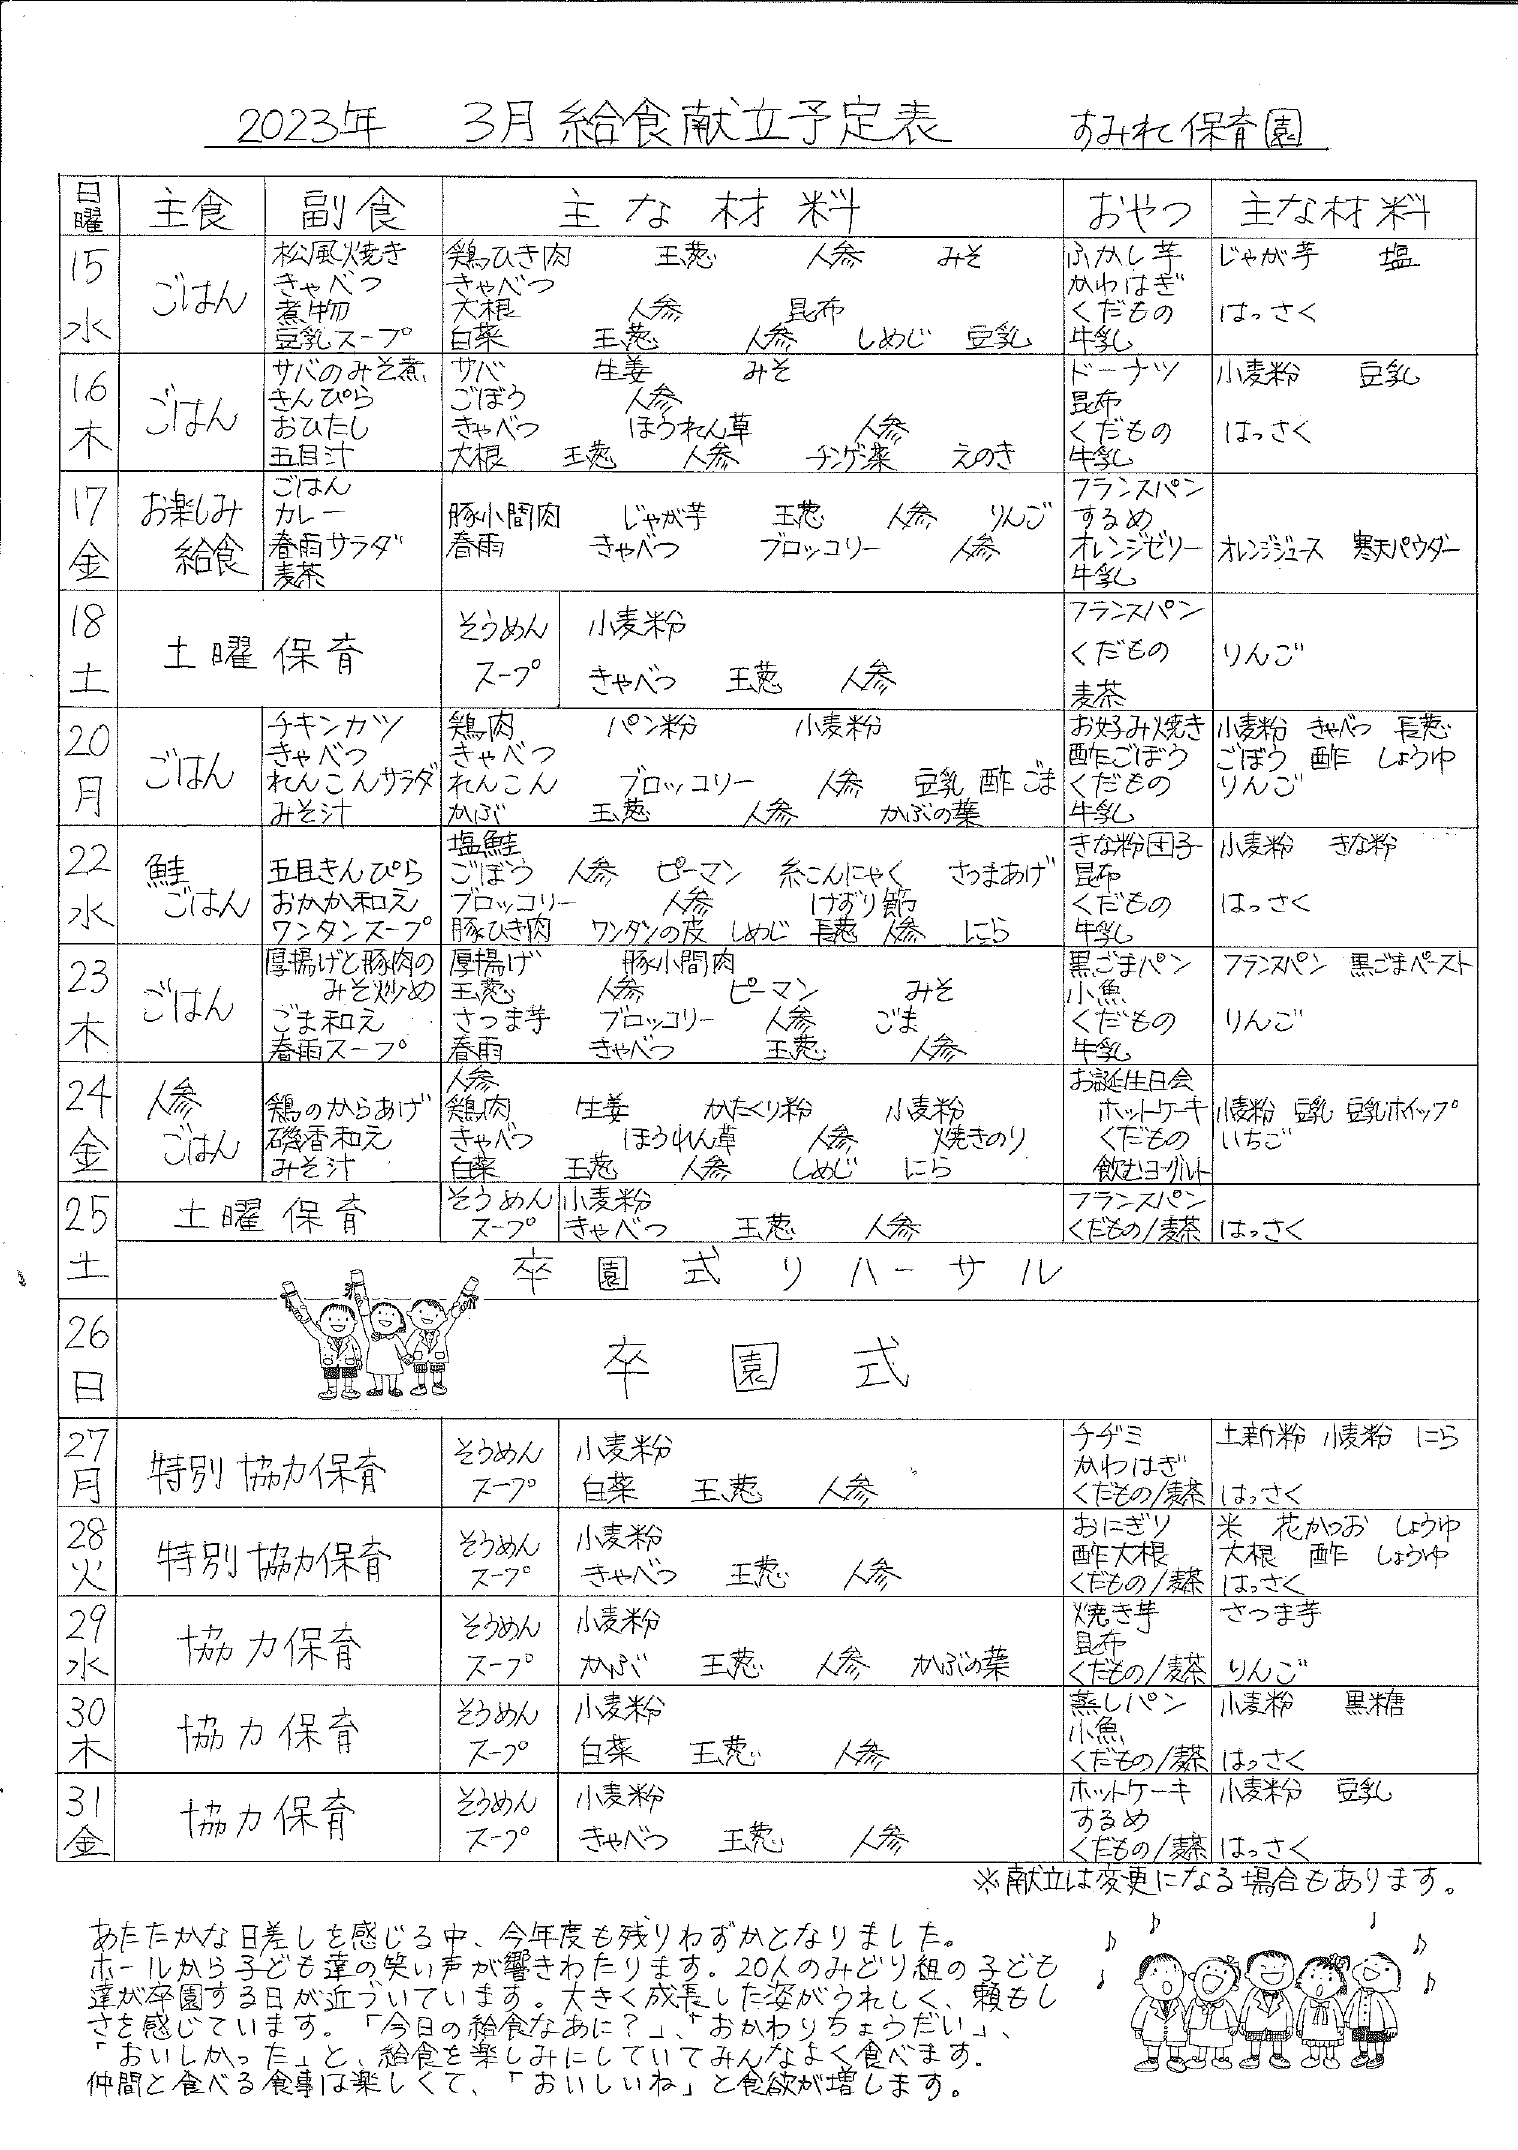 2023年 3月給食献立予定表 すみれ保育園
日曜 主食 副食 主な材料 おやつ 主な材料
15 水 ごはん
松風焼き 鶏ひき肉 玉葱 人参 みそ ふかし芋 じゃが芋 塩
きゃべつ きゃべつ かわはぎ
煮物 大根 人参 昆布 くだもの はっさく
豆乳スープ 白菜 玉葱 人参 しめじ 豆乳 牛乳
16 木 ごはん
サバのみそ煮 サバ 生姜 みそ ドーナツ 小麦粉 豆乳
きんぴら ごぼう 人参 昆布
おひたし きゃべつ ほうれん草 人参 くだもの はっさく
五目汁 大根 玉葱 人参 チンゲン菜 えのき 牛乳
17 金 お楽しみ給食
ごはん フランスパン
カレー 豚小間肉 じゃが芋 玉葱 人参 りんご するめ
春雨サラダ 春雨 きゃべつ ブロッコリー 人参 オレンジゼリー オレンジジュース 寒天パウダー
麦茶 牛乳
18 土 土曜保育
そうめん 小麦粉 フランスパン
スープ きゃべつ 玉葱 人参 くだもの りんご
麦茶
20 月 ごはん
チキンカツ 鶏肉 パン粉 小麦粉 お好み焼き 小麦粉 きゃべつ 長葱
きゃべつ きゃべつ 酢ごぼう ごぼう 酢 しょうゆ
れんこんサラダ れんこん ブロッコリー 人参 豆乳 酢 ごま くだもの りんご
みそ汁 かぶ 玉葱 人参 かぶの葉 牛乳
22 水 鮭ごはん
塩鮭 きな粉団子 小麦粉 きな粉
五目きんぴら ごぼう 人参 ピーマン 糸こんにゃく さつまあげ 昆布
おかか和え ブロッコリー 人参 けずり節 くだもの はっさく
ワンタンスープ 豚ひき肉 ワンタンの皮 しめじ 長葱 人参 にら 牛乳
23 木 ごはん
厚揚げと豚肉の 厚揚げ 豚小間肉 黒ごまパン フランスパン 黒ごまペースト
みそ炒め 玉葱 人参 ピーマン みそ 小魚
ごま和え さつま芋 ブロッコリー 人参 ごま くだもの りんご
春雨スープ 春雨 きゃべつ 玉葱 人参 牛乳
24 金 人参ごはん
人参 お誕生日会
鶏のからあげ 鶏肉 生姜 かたくり粉 小麦粉 ホットケーキ 小麦粉 豆乳 豆乳ホイップ
磯香和え きゃべつ ほうれん草 人参 焼きのり くだもの いちご
みそ汁 白菜 玉葱 人参 しめじ にら 飲むヨーグルト
25 土 土曜保育
そうめん 小麦粉 フランスパン
スープ きゃべつ 玉葱 人参 くだもの/麦茶 はっさく
卒園式リハーサル
26 日 卒園式
27 月 特別協力保育
そうめん 小麦粉 チヂミ 上新粉 小麦粉 にら
かわはぎ
スープ 白菜 玉葱 人参 くだもの/麦茶 はっさく
28 火 特別協力保育
そうめん 小麦粉 おにぎり 米 花かつお しょうゆ
酢大根 大根 酢 しょうゆ
スープ きゃべつ 玉葱 人参 くだもの/麦茶 はっさく
29 水 協力保育
そうめん 小麦粉 焼き芋 さつま芋
昆布
スープ かぶ 玉葱 人参 かぶの葉 くだもの/麦茶 りんご
30 木 協力保育
そうめん 小麦粉 蒸しパン 小麦粉 黒糖
小魚
スープ 白菜 玉葱 人参 くだもの/麦茶 はっさく
31 金 協力保育
そうめん 小麦粉 ホットケーキ 小麦粉 豆乳
するめ
スープ きゃべつ 玉葱 人参 くだもの/麦茶 はっさく
※献立は変更になる場合もあります。
あたたかな日差しを感じる中、今年度も残りわずかとなりました。
ホールから子ども達の笑い声が響きわたります。20人のみどり組の子ども
達が卒園する日が近づいています。大きく成長した姿がうれしく、頼もし
さを感じています。「今日の給食なあに？」、「おかわりちょうだい」、
「おいしかった」と、給食を楽しみにしていてみんなよく食べます。
仲間と食べる食事は楽しくて、「おいしいね」と食欲が増します。